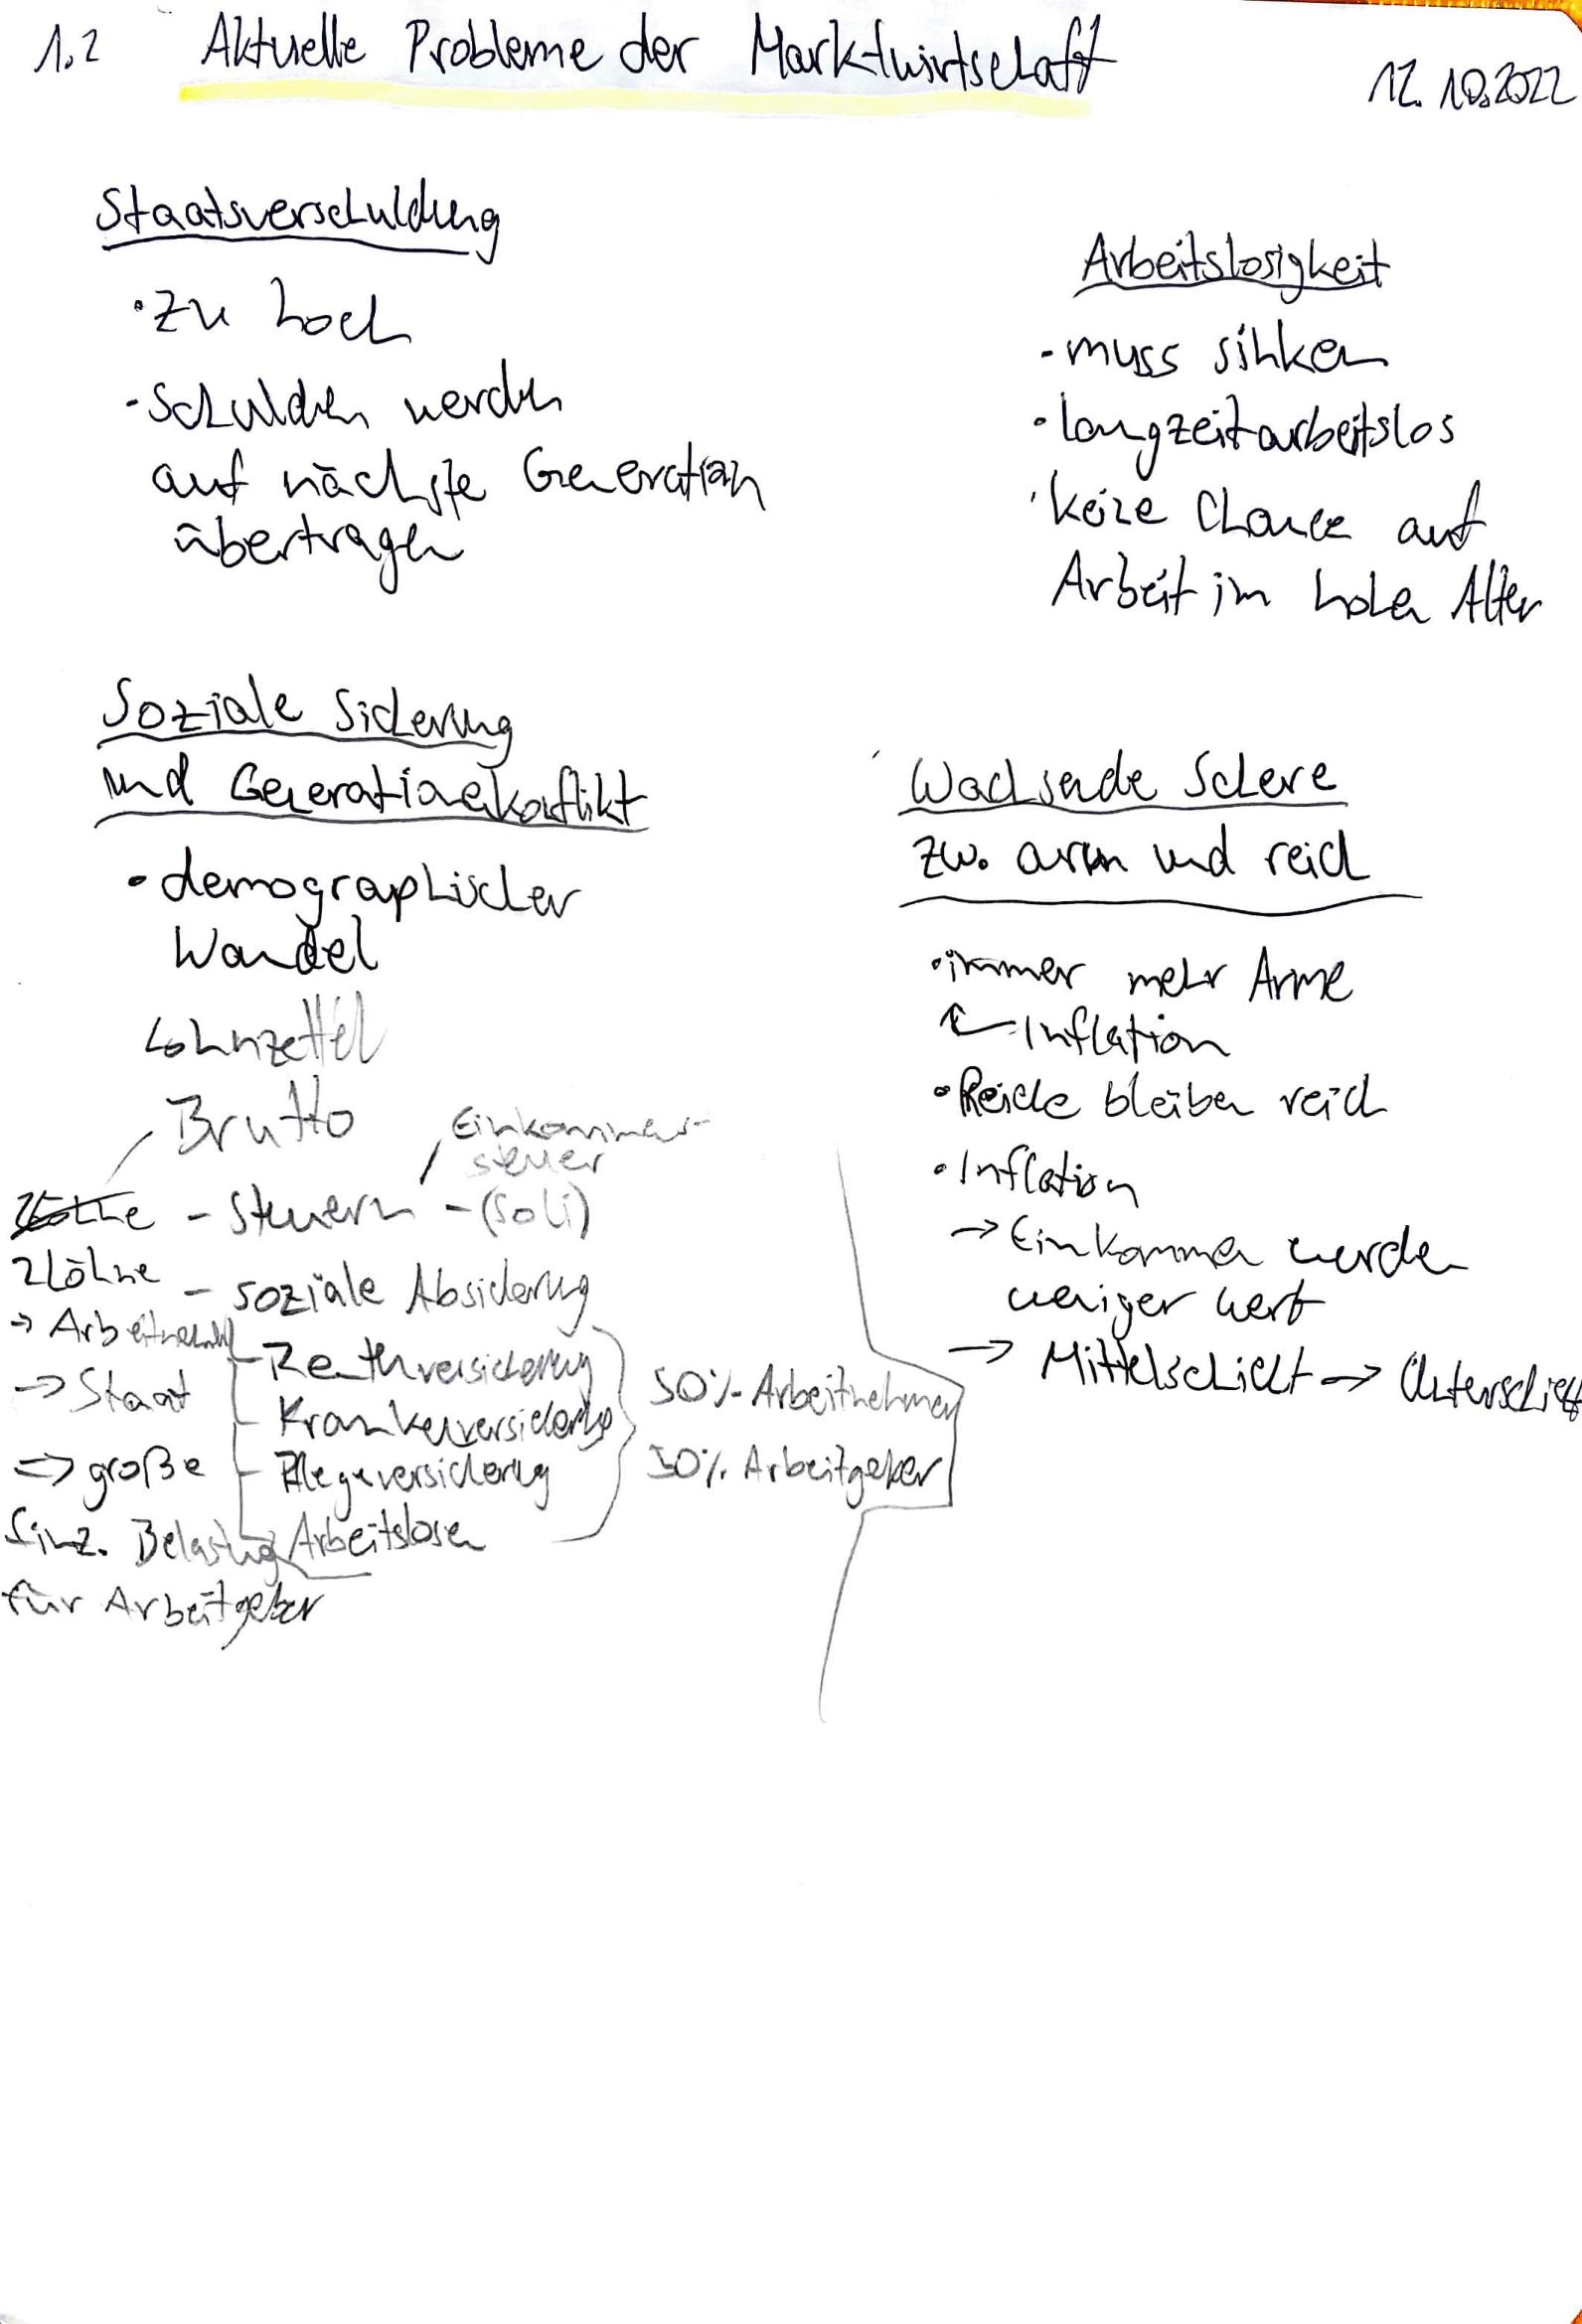 1.2 Aktuelle Probleme der Marktwirtschaft
12.10.2022
Staatsverschuldung
• zu hoch
• Schulden werden
auf nächste Generation
übertragen
Arbeitslosigkeit
• muss sinken
• langzeitarbeitslos
• keine Chance auf
Arbeit im hohen Alter
Soziale Sicherung
und Generationenkonflikt
• demographischer
Wandel
Lohnzettel
Brutto
Einkommens-
steuer
- Steuern - (Soli)
2 Löhne
- soziale Absicherung
→ Arbeitnehmer
- Rentenversicherung
→ Staat
- Krankenversicherung
- Pflegeversicherung
⇒ große
finz. Belastung
für Arbeitgeber
Arbeitslosen
50% Arbeitnehmer
50% Arbeitgeber
Wachsende Schere
zw. arm und reich
• immer mehr Arme
Inflation
• Reiche bleiben reich
• Inflation
→ Einkommen werden
weniger wert
→ Mittelschicht → Unterschicht